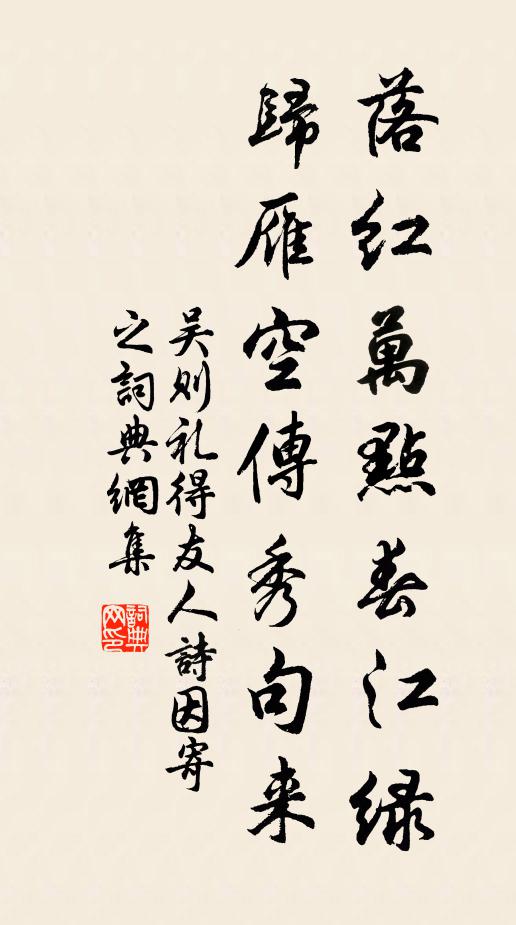 落红萬點春江緑
歸雁空傳秀句来
吴则礼得友人詩因寄
之詞典網集
詞典
网印